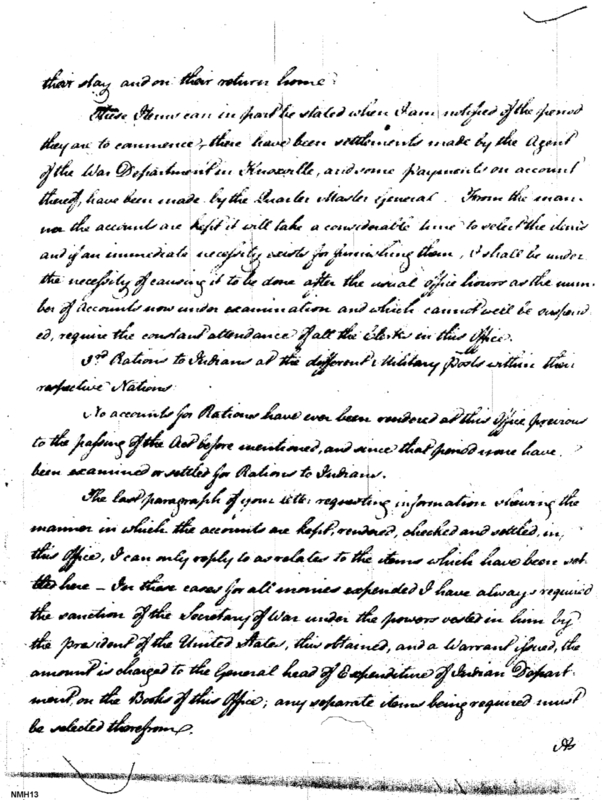 their stay and on their return home.
These Items can in part be stated when I am notified of the period
they are to commence, there have been settlements made by the Agent
of the War Department in Knoxville, and some payments on account
thereof, have been made by the Quarter Master General. From the man-
ner the accounts are kept it will take a considerable time to select the items
and if an immediate necessity exists for furnishing them, I shall be under
the necessity of causing it to be done after the usual office hours as the num-
ber of Accounts now under examination and which cannot well be suspend
ed, require the constant attendance of all the Clerks in this Office.
3rd Rations to Indians at the different Military posts within their
respective Nations
No accounts for Rations have ever been rendered at this Office previous
to the passing of the Act before mentioned, and since that period none have
been examined or settled for Rations to Indians.
The last paragraph of your letter requesting information shewing the
manner in which the accounts are kept, rendered, checked and settled, in
this Office, I can only reply to as relates to the items which have been set-
tled here – In these cases for all monies expended I have always required
the sanction of the Secretary of War under the powers vested in him by
the president of the United States, this obtained, and a Warrant issued, the
amount is charged to the General head of Expenditure of Indian Depart-
ment, on the Books of this Office; any separate items being required must
be selected therefrom.
As
NMH13